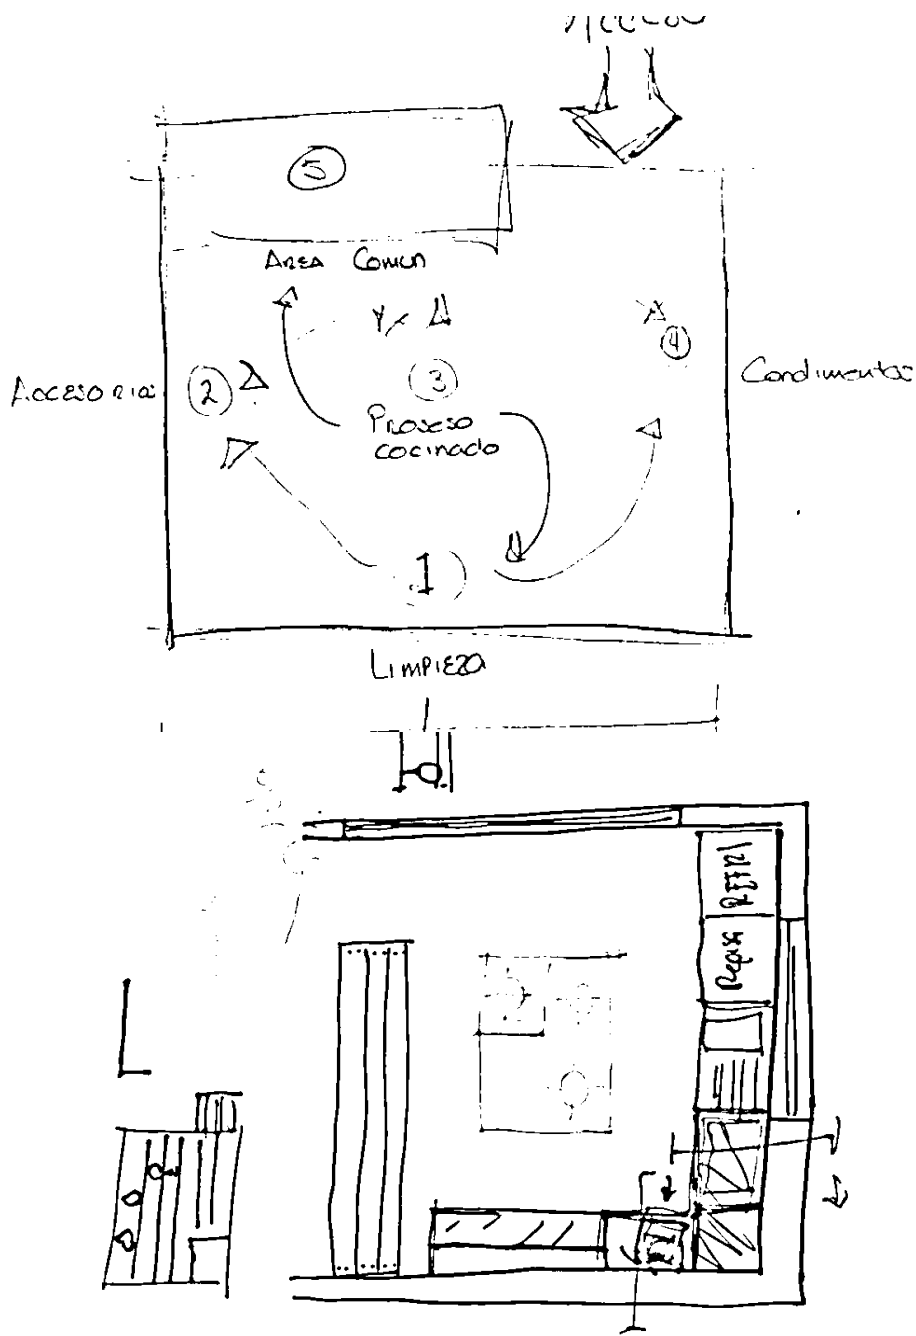 5
Area Comun
4
Accesorios
2
3
Condimentos
Proseso
cocinado
1
Limpieza
Refri
Repisa